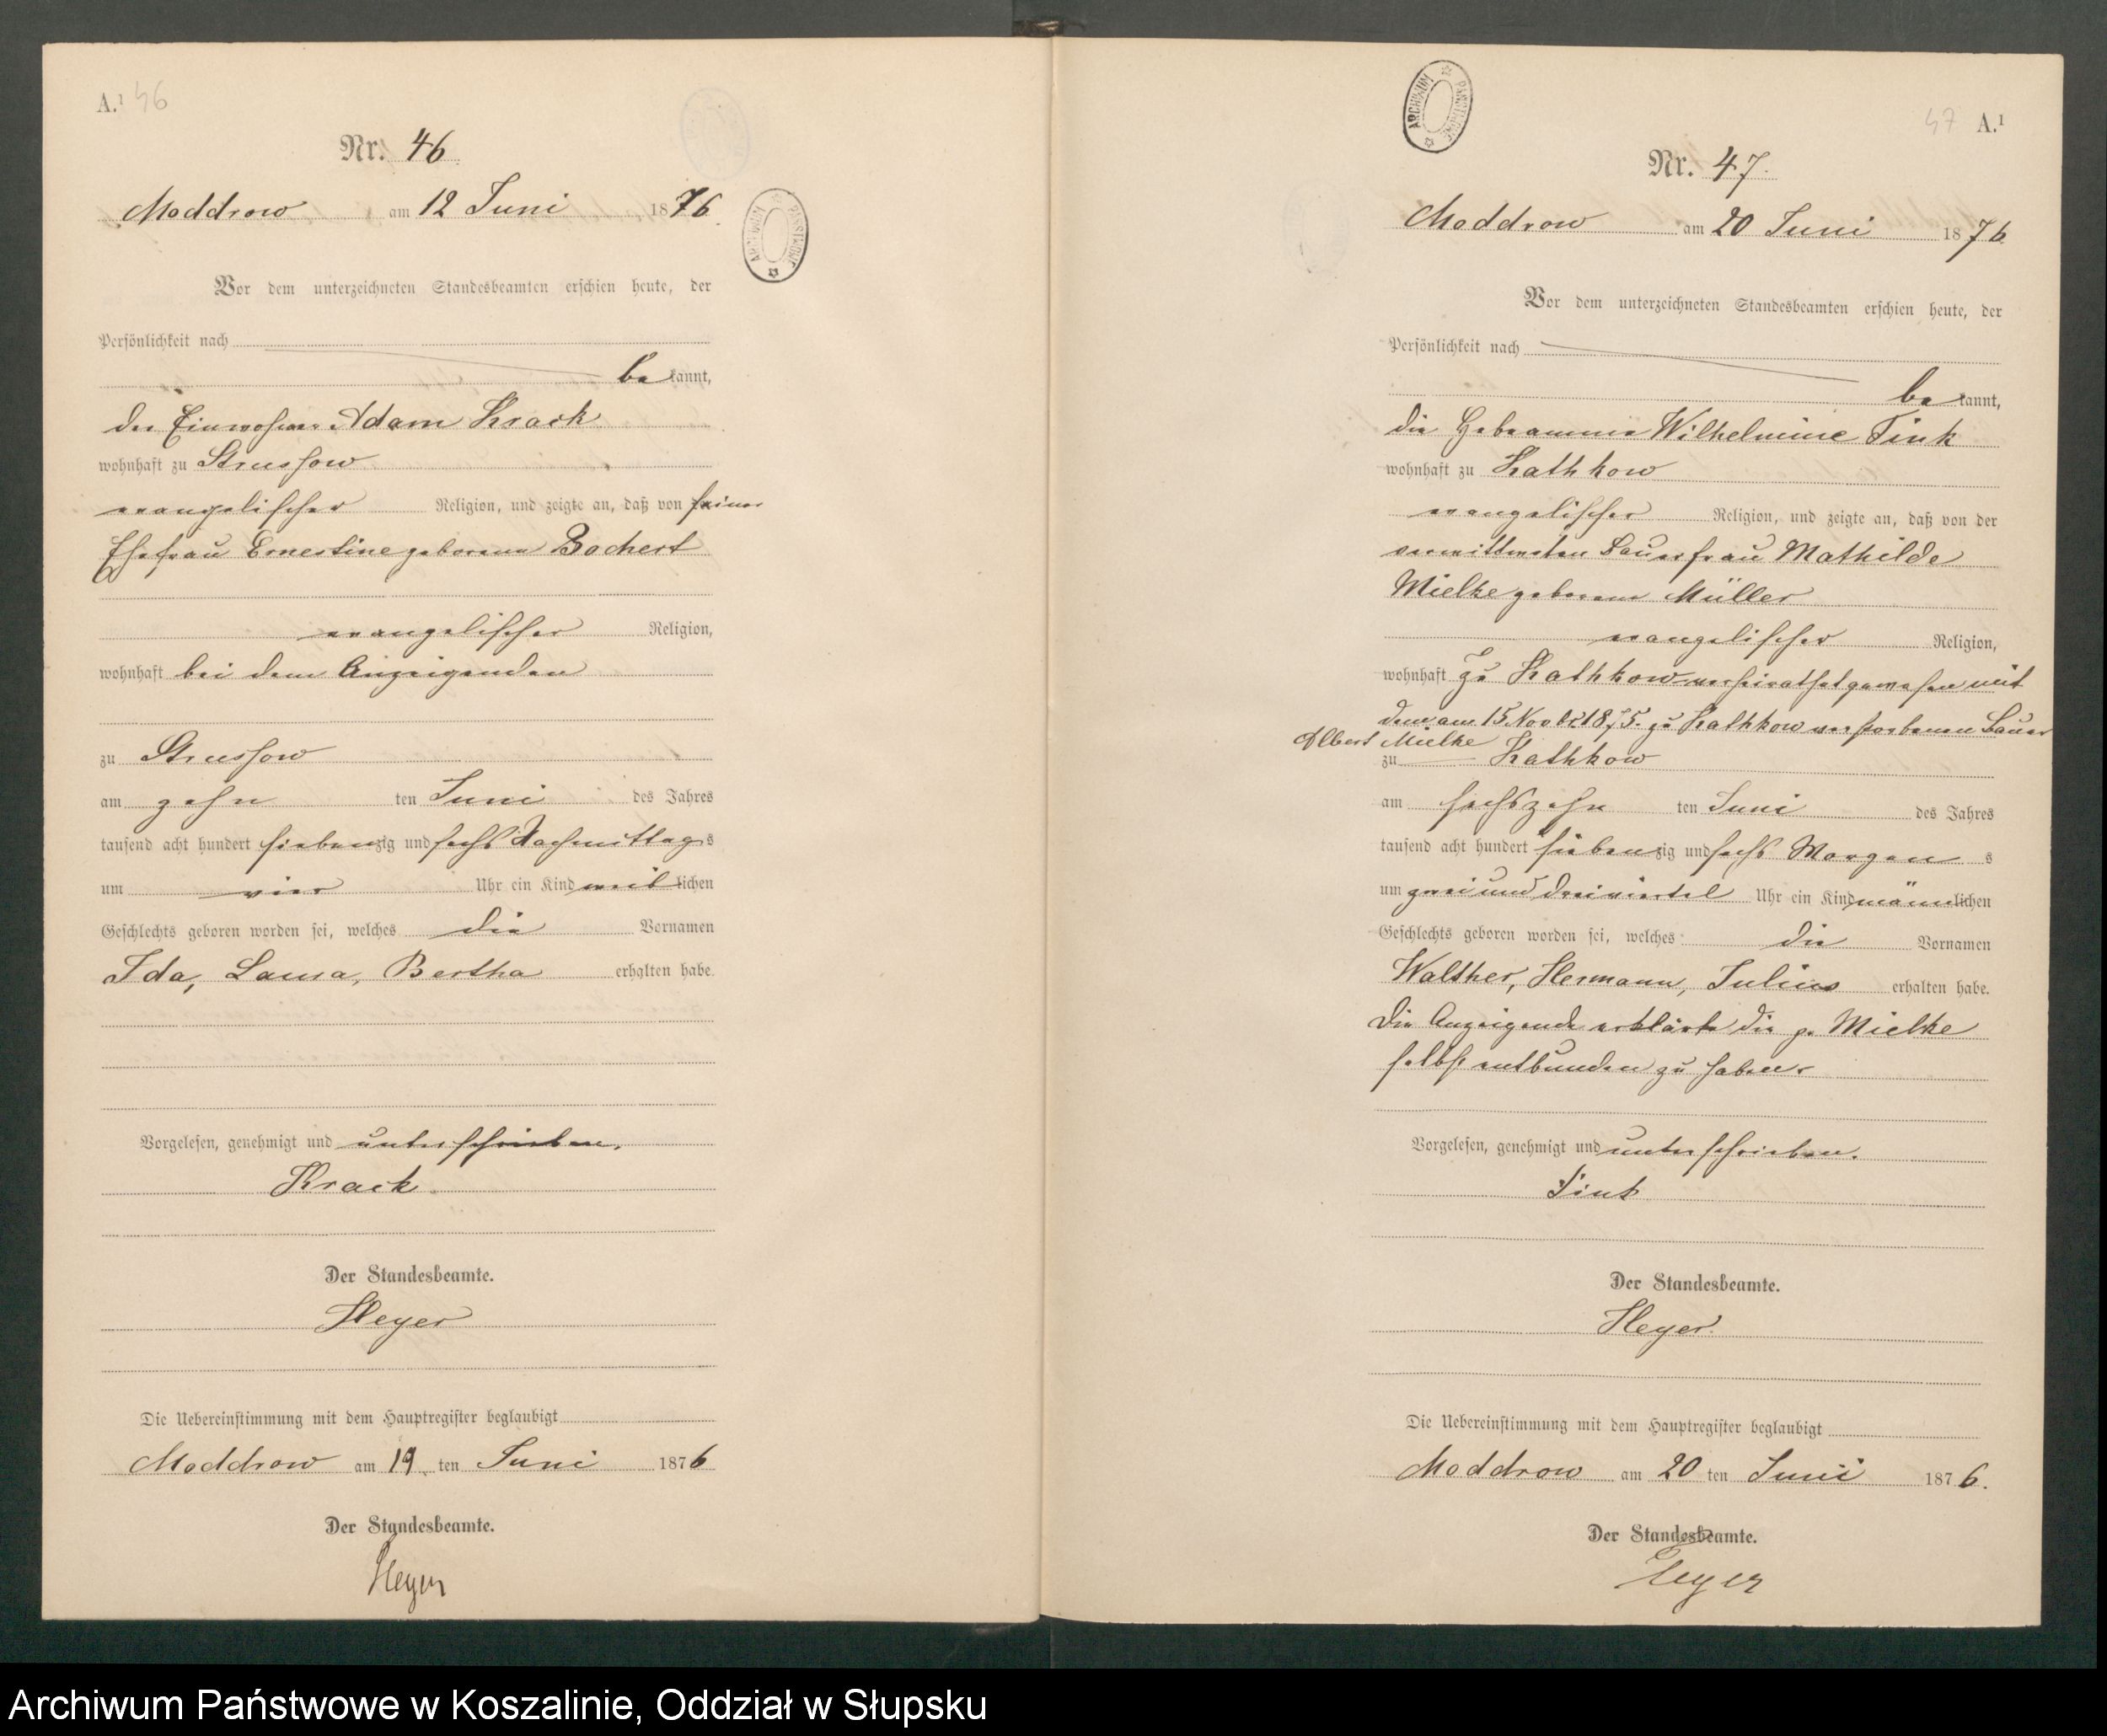 A.¹ 46
Nr. 46
Moddrow am 12 Juni 1876.
Vor dem unterzeichneten Standesbeamten erschien heute, der
Persönlichkeit nach
bekannt,
der Einwohner Adam Krack
wohnhaft zu Strussow
evangelischer Religion, und zeigte an, daß von seiner
Ehefrau Ernestine geborene Bochert
evangelischer Religion,
wohnhaft bei dem Anzeigenden
zu Strussow
am zehn ten Juni des Jahres
tausend acht hundert siebenzig und sechs Nachmittags
um vier Uhr ein Kind weiblichen
Geschlechts geboren worden sei, welches die Vornamen
Ida, Laura, Bertha erhalten habe.
Vorgelesen, genehmigt und unterschrieben.
Krack.
Der Standesbeamte.
Heyer
Die Uebereinstimmung mit dem Hauptregister beglaubigt
Moddrow am 19 ten Juni 1876
Der Standesbeamte.
Heyer
ARCHIWUM PAŃSTWOWE
47 A.¹
Nr. 47.
Moddrow am 20 Juni 1876
Vor dem unterzeichneten Standesbeamten erschien heute, der
Persönlichkeit nach
bekannt,
die Hebeamme Wilhelmine Tink
wohnhaft zu Kathkow
evangelischer Religion, und zeigte an, daß von der
verwittweten Bauerfrau Mathilde
Mielke geborene Müller
evangelischer Religion,
wohnhaft zu Kathkow verheirathet gewesen mit
dem am 15 Novbr 1875. zu Kathkow verstorbenen Bauer
Albert Mielke
zu Kathkow
am sechszehn ten Juni des Jahres
tausend acht hundert siebenzig und sechs Morgens
um zwei und dreiviertel Uhr ein Kind männlichen
Geschlechts geboren worden sei, welches die Vornamen
Walther, Hermann, Julius erhalten habe.
Die Anzeigende erklärte die p. Mielke
selbst entbunden zu haben.
Vorgelesen, genehmigt und unterschrieben.
Tink
Der Standesbeamte.
Heyer.
Die Uebereinstimmung mit dem Hauptregister beglaubigt
Moddrow am 20 ten Juni 1876.
Der Standesbeamte.
Heyer
ARCHIWUM PAŃSTWOWE
Archiwum Państwowe w Koszalinie, Oddział w Słupsku